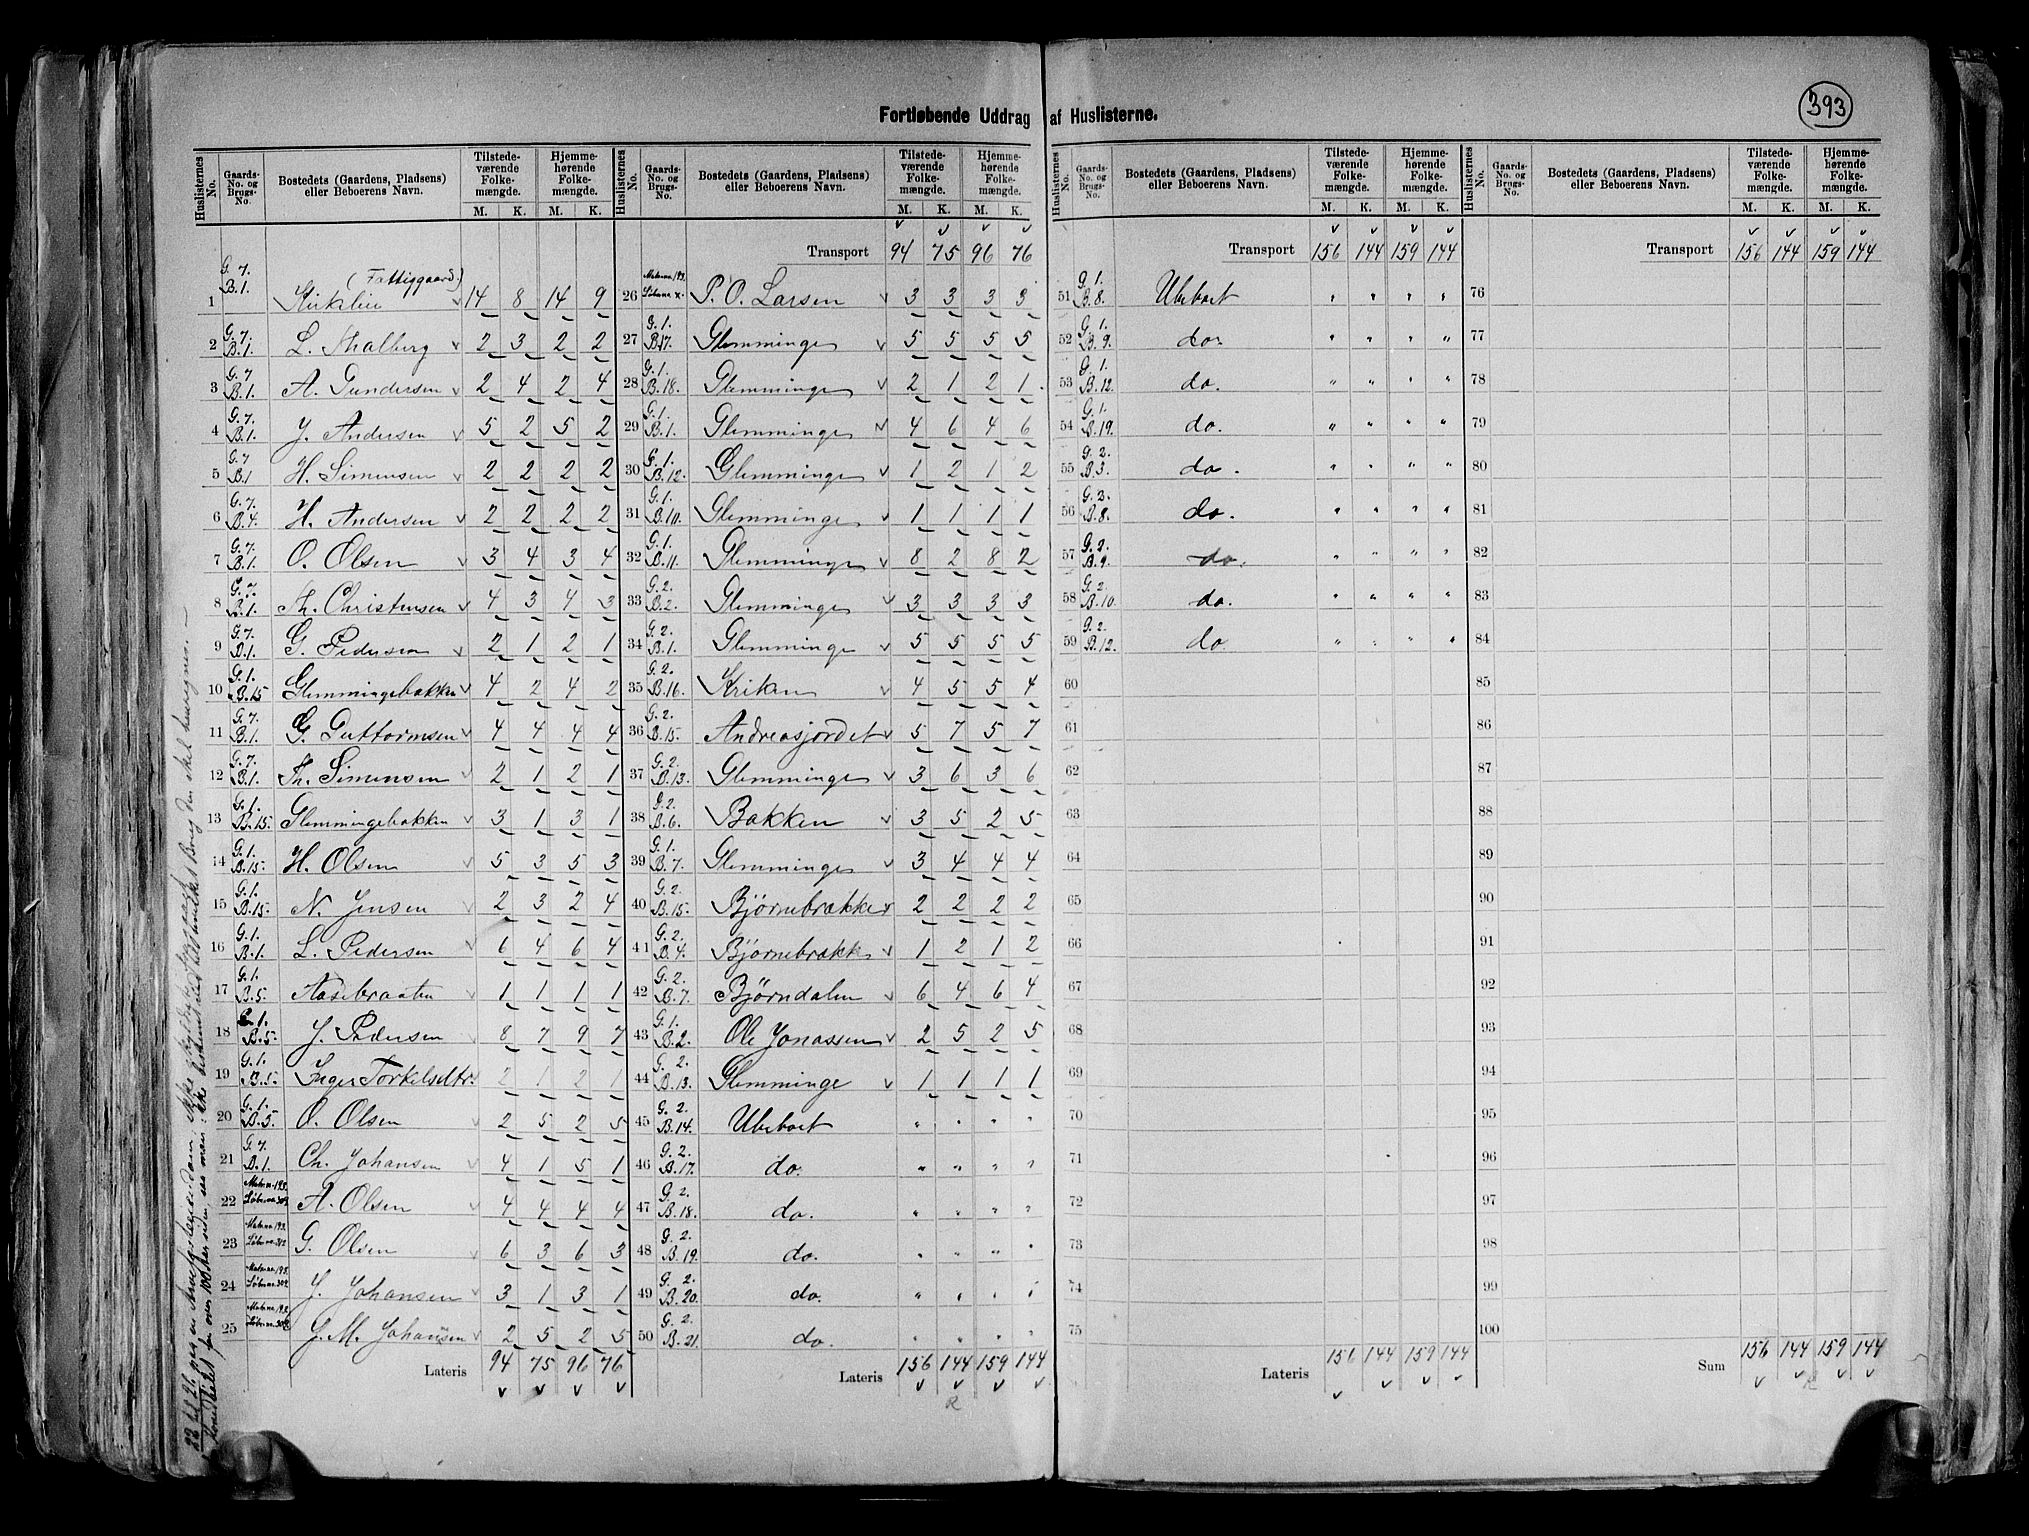 393
Fortløbende Uddrag af Huslisterne.
Huslisternes No. Gaards- No. og Brugs- No. Bostedets (Gaardens, Pladsens) eller Beboerens Navn. Tilstede- værende Folke- mængde. M. K. Hjemme- hørende Folke- mængde. M. K.
1 G. 7. B. 1. Kirkelien (Fattiggaard) 14 8 14 9
2 G. 7. B. 1. L. Thalberg 2 3 2 2
3 G. 7 B. 1. A. Gundersen 2 4 2 4
4 G. 7. B. 1. J. Andersen 5 2 5 2
5 G. 7 B. 1 H. Simensen 2 2 2 2
6 G. 7. B. 4. H. Andersen 2 2 2 2
7 G. 7. B. 1. O. Olsen 3 4 3 4
8 G. 7. B. 1. Th. Christensen 4 3 4 3
9 G. 7. B. 1. G. Pedersen 2 1 2 1
10 G. 1. B. 15 Glemmingebakken 4 2 4 2
11 G. 7. B. 1. G. Guttormsen 4 4 4 4
12 G. 7. B. 1. Th. Simensen 2 1 2 1
13 G. 1. B. 15. Glemmingebakken 3 1 3 1
14 G. 1. B. 15. H. Olsen 5 3 5 3
15 G. 1. B. 15. N. Jensen 2 3 2 4
16 G. 1. B. 1. L. Pedersen 6 4 6 4
17 G. 1. B. 5. Aasebraaten 1 1 1 1
18 G. 1. B. 5. J. Pedersen 8 7 9 7
19 G. 1. B. 5. Inger Torkelsdtr. 2 1 2 1
20 G. 1. B. 5. O. Olsen 2 5 2 5
21 G. 7. B. 1. Ch. Johansen 4 1 5 1
22 Matr. no. 193. Löbe no. 302. A. Olsen 4 4 4 4
23 Matr. no. 193. Löbe no. 302 G. Olsen 6 3 6 3
24 Matr. no. 193. Löbe no. 302. J. Johansen 3 1 3 1
25 Matr. no. 193. Löbe no. 302 G. M. Johansen 2 5 2 5
Lateris 94 75 96 76
Huslisternes No. Gaards- No. og Brugs- No. Bostedets (Gaardens, Pladsens) eller Beboerens Navn. Tilstede- værende Folke- mængde. M. K. Hjemme- hørende Folke- mængde. M. K.
Transport 94 75 96 76
26 Matr. no. 193. Löbe no. x. P. O. Larsen 3 3 3 3
27 G. 1. B. 17. Glemminge 5 5 5 5
28 G. 1. B. 18. Glemminge 2 1 2 1
29 G. 1. B. 1. Glemminge 4 6 4 6
30 G. 1. B. 12. Glemminge 1 2 1 2
31 G. 1. B. 10. Glemminge 1 1 1 1
32 G. 1. B. 11. Glemminge 8 2 8 2
33 G. 2. B. 2. Glemminge 3 3 3 3
34 G. 2. B. 1. Glemminge 5 5 5 5
35 G. 2. B. 16. Kriken 4 5 5 4
36 G. 2. B. 15. Andreasjordet 5 7 5 7
37 G. 2. B. 13. Glemminge 3 6 3 6
38 G. 2. B. 6. Bakken 3 5 2 5
39 G. 1. B. 7. Glemminge 3 4 4 4
40 G. 2. B. 15. Bjørnebrække 2 2 2 2
41 G. 2. B. 4. Bjørnebrække 1 2 1 2
42 G. 2. B. 7. Bjørndalen 6 4 6 4
43 G. 1. B. 2. Ole Jonassen 2 5 2 5
44 G. 2. B. 13. Glemminge 1 1 1 1
45 G. 2. B. 14. Ubeboet " " " "
46 G. 2. B. 17. do. " " " "
47 G. 2. B. 18. do. " " " "
48 G. 2. B. 19. do. " " " "
49 G. 2. B. 20. do. " " " "
50 G. 2. B. 21. do. " " " "
Lateris 156 144 159 144
R
Huslisternes No. Gaards- No. og Brugs- No. Bostedets (Gaardens, Pladsens) eller Beboerens Navn. Tilstede- værende Folke- mængde. M. K. Hjemme- hørende Folke- mængde. M. K.
Transport 156 144 159 144
51 G. 1. B. 8. Ubeboet " " " "
52 G. 1. B. 9. do. " " " "
53 G. 1. B. 12. do. " " " "
54 G. 1. B. 19. do. " " " "
55 G. 2. B. 3. do. " " " "
56 G. 2. B. 8. do. " " " "
57 G. 2. B. 9. do. " " " "
58 G. 2. B. 10. do. " " " "
59 G. 2. B. 12. do " " " "
60
61
62
63
64
65
66
67
68
69
70
71
72
73
74
75
Lateris 156 144 159 144
Huslisternes No. Gaards- No. og Brugs- No. Bostedets (Gaardens, Pladsens) eller Beboerens Navn. Tilstede- værende Folke- mængde. M. K. Hjemme- hørende Folke- mængde. M. K.
Transport 156 144 159 144
76
77
78
79
80
81
82
83
84
85
86
87
88
89
90
91
92
93
94
95
96
97
98
99
100
Sum 156 144 159 144
R
22 til 26 paa en Arvefæsteeiendom, ikke skyldlagt
for over 100 Aar siden, saa man ikke bestemt ved til hvilket Brug den skal henregnes.